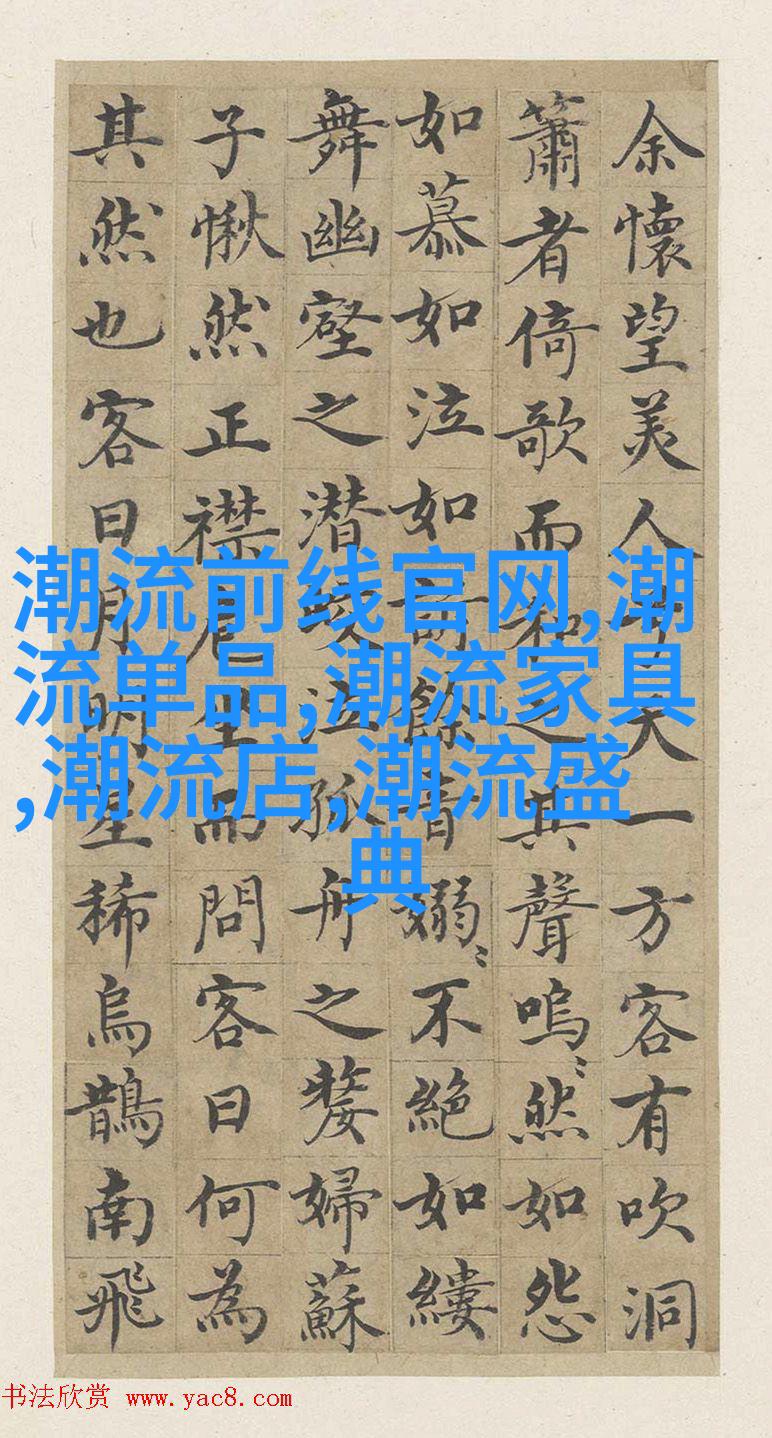 余懷望美人天一方客有吹洞
簫者倚歌而和之其聲嗚〻然如怨
如慕如泣如訴餘音嫋〻不絕如縷
舞幽壑之潛蛟泣孤舟之嫠婦蘇
子愀然正襟危坐而問客曰何為
其然也客曰月明星稀烏鵲南飛
潮流前线官网,潮
流单品,潮流家具
,潮流店,潮流盛
典
书法欣赏 www.yac8.com